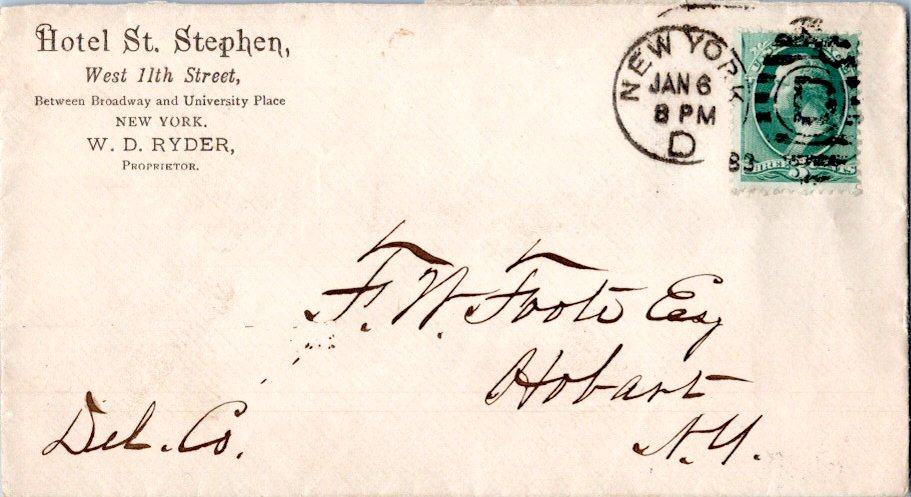 Hotel St. Stephen,
West 11th Street,
Between Broadway and University Place
NEW YORK.
W. D. RYDER,
PROPRIETOR.
NEW YORK
JAN 6
8 PM
D
83
THREE 3 CENTS
F. W. Foote Esq
Hobart
N.Y.
Del. Co.